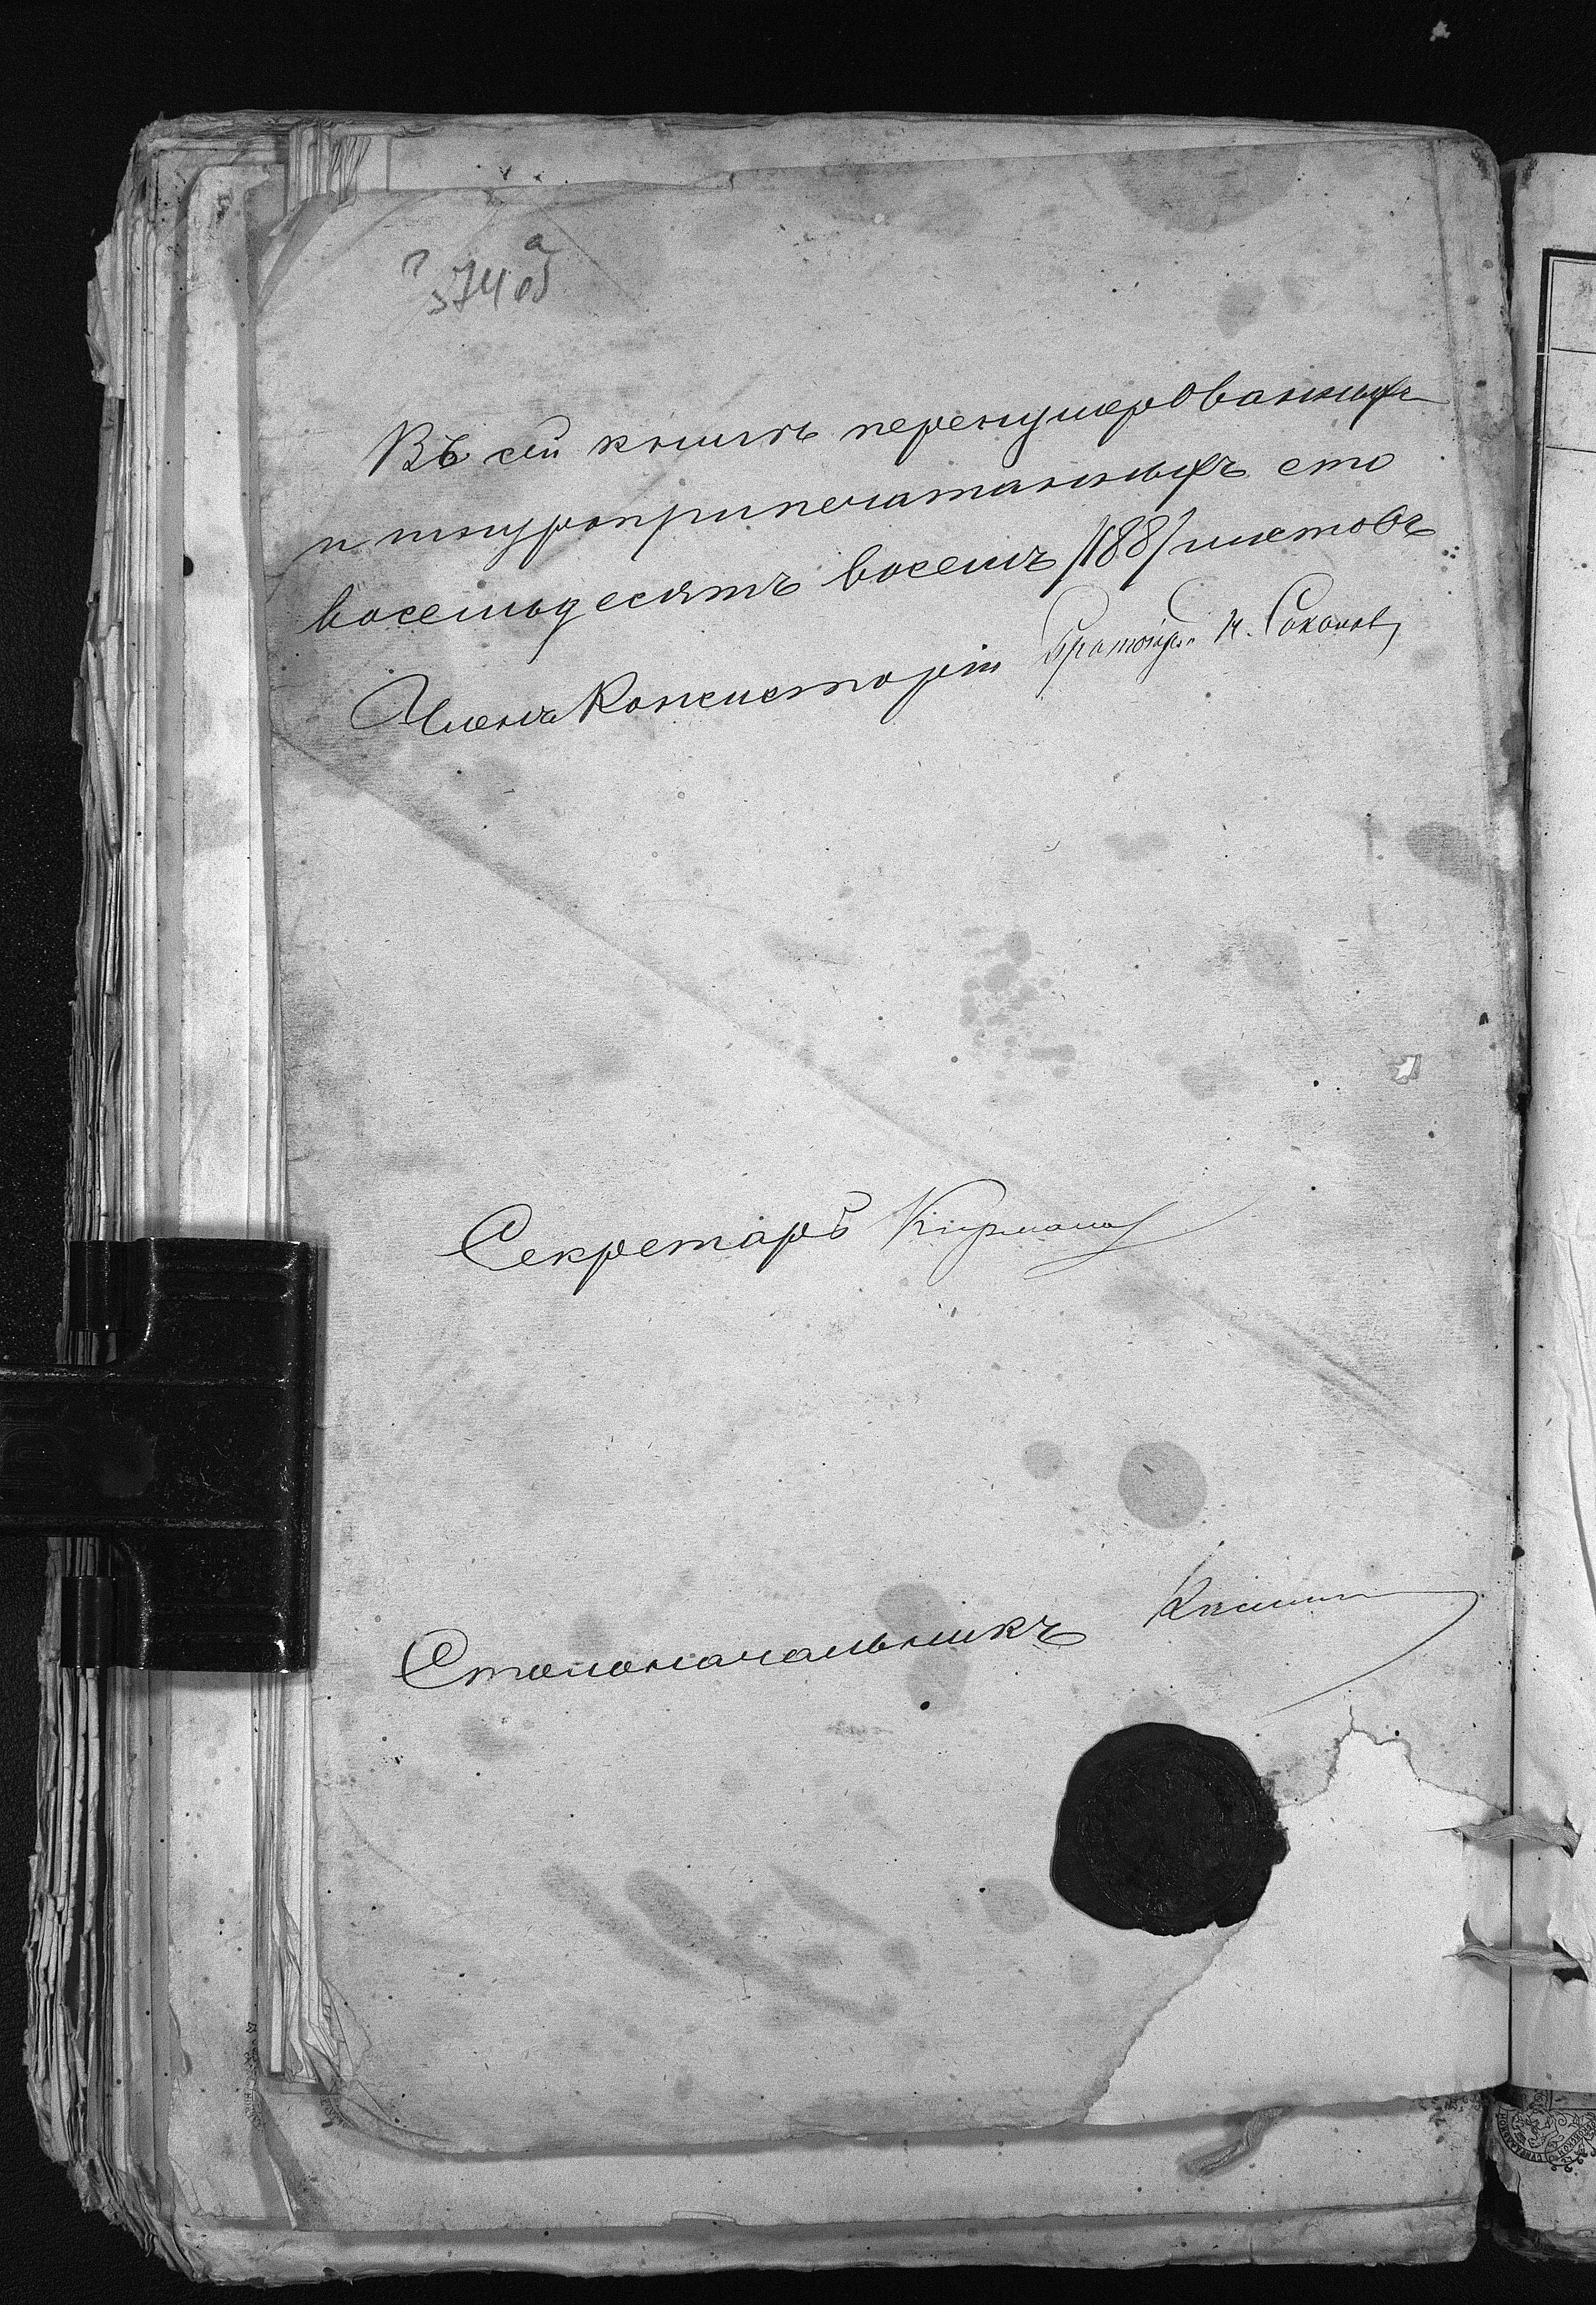 374 об
а
Въ сей книгѣ перенумерованныхъ
и шнуроприпечатанныхъ сто
восемьдесятъ восемь /188/ листовъ
Членъ Консисторіи Протоіерей Н. Соколовъ
Секретарь
Столоначальникъ